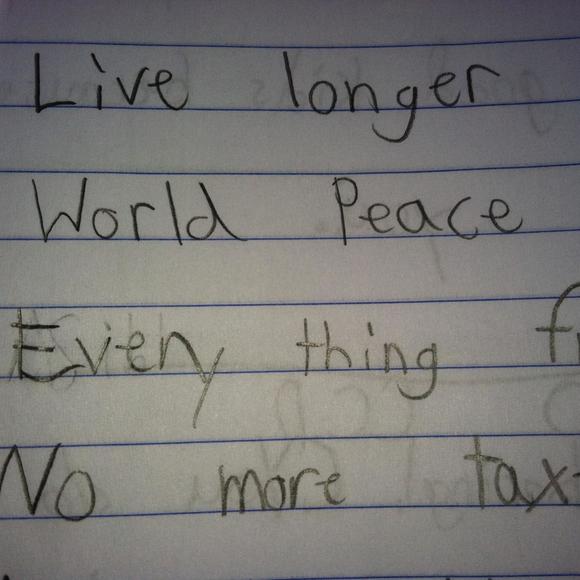 Live longer
World Peace
Every thing
No more tax